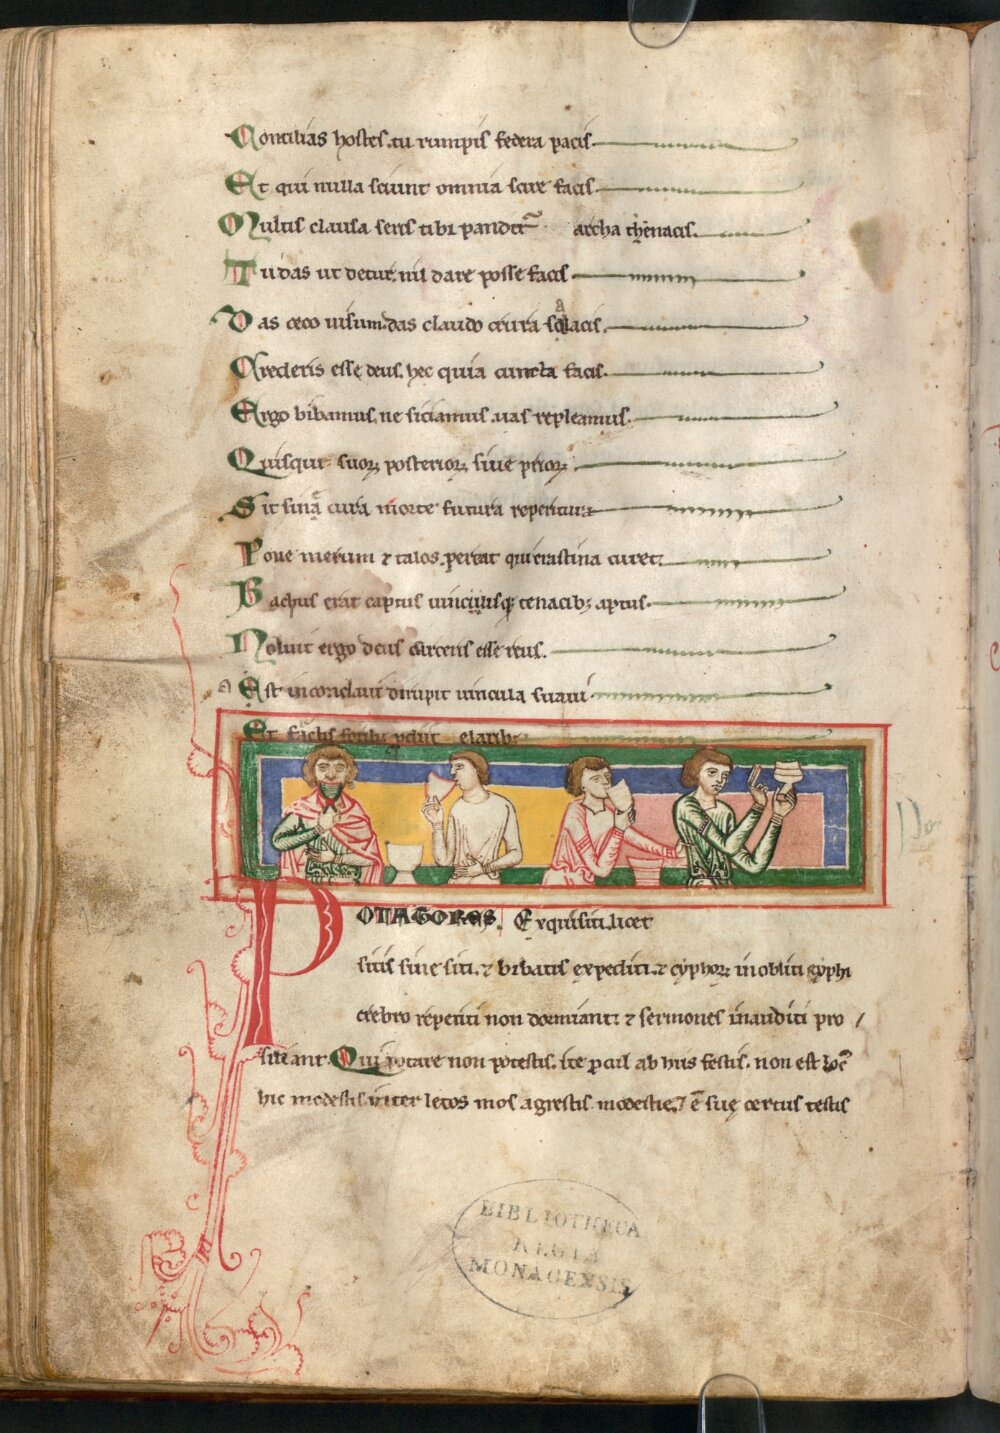 Concilias hostes. tu rumpis federa pacis.
Et qui nulla sciunt omnia scire facis.
Multis clausa seris tibi pandit᷑ archa tenacis.
Tu das ut detur. nil dare posse facis
Das ceco uisum. das claudo crura salacis.
Crederis esse deus. hec quia cuncta facis.
Ergo bibamus. ne siciamus. uas repleamus.
Quisque suoꝝ posterioꝝ siue prioꝝ
Sit sina cura morte futura repentura
Pone merum ⁊ talos. pereat qui crastina curet.
Bachus erat captus uinclisqꝫ tenacibꝫ aptus.
Noluit ergo deus carceris esse reus.
Ast in conclaui dirupit uincula suaui
Et fractis foribꝫ
POTATORES. Exquisiti. licet
sitis sine siti. ⁊ bibatis expediti. ⁊ cyphoꝝ inobliti cyphi
crebro repetiti non dormiant. ⁊ sermones inauditi pro
siliant. Qui potare non potestis. ite ꝓcul ab his festis. non est loc᷒
hic modestis. inter letos mos agrestis modestie. ⁊ ē suę certus testis
BIBLIOTHECA
REGIA
MONACENSIS